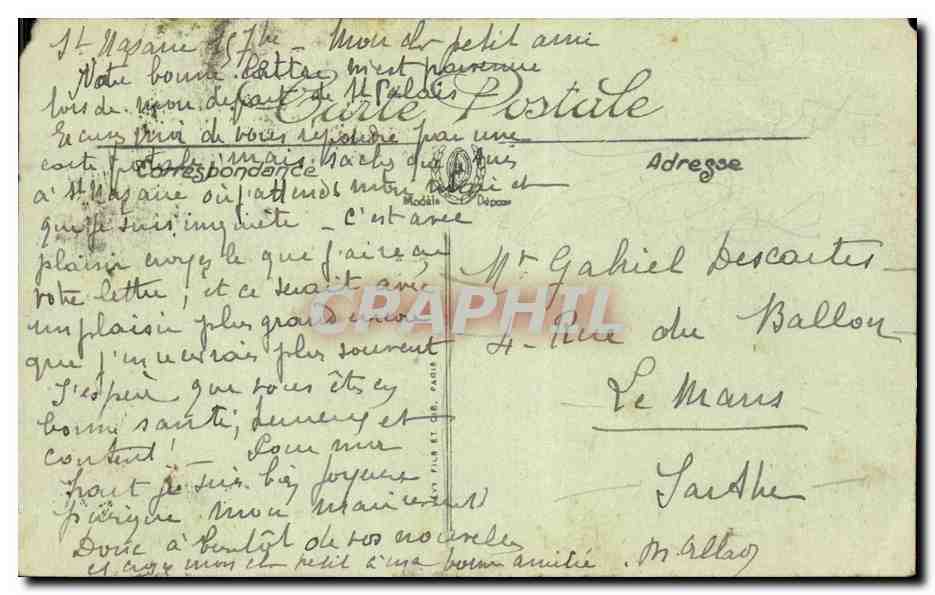 St Nazaire 15 7bre - Mon cher petit ami
Votre bonne lettre m'est parvenue
lors de mon départ de St Palais
Carte Postale
Excusez moi de vous répondre par une
carte postale, mais sachez que suis
Correspondance
Adresse
à St Nazaire où j'attends mon mari et
Modèle Déposé
que je suis inquiète - C'est avec
plaisir croyez le que j'ai reçu
votre lettre, et ce serait avec
un plaisir plus grand encore
que j'en aurais plus souvent
J'espère que vous êtes en
bonne santé, heureux et
content! - Pour ma
part je suis bien joyeuse
puisque mon mari vient
Donc à bientôt de vos nouvelles
et croyez mon cher petit à ma bonne amitié.
Mr Gabriel Descartes
4 - Rue du Ballon
Le Mans
Sarthe
FILS ET CIE, PARIS
CRAPHIL